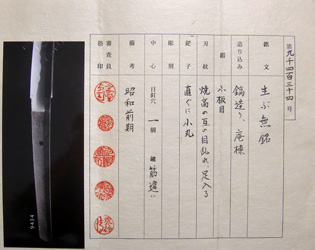 第九千四百三十四号
銘文 生ぶ無銘
造り込み 鎬造り、庵棟
鍛 小板目
刃紋 焼高の互の目乱れ、足入る
鋩子 直ぐに小丸
彫刻
中心 目釘穴 一個 鑢 筋違い
備考 昭和前期
審査員
助印
9434